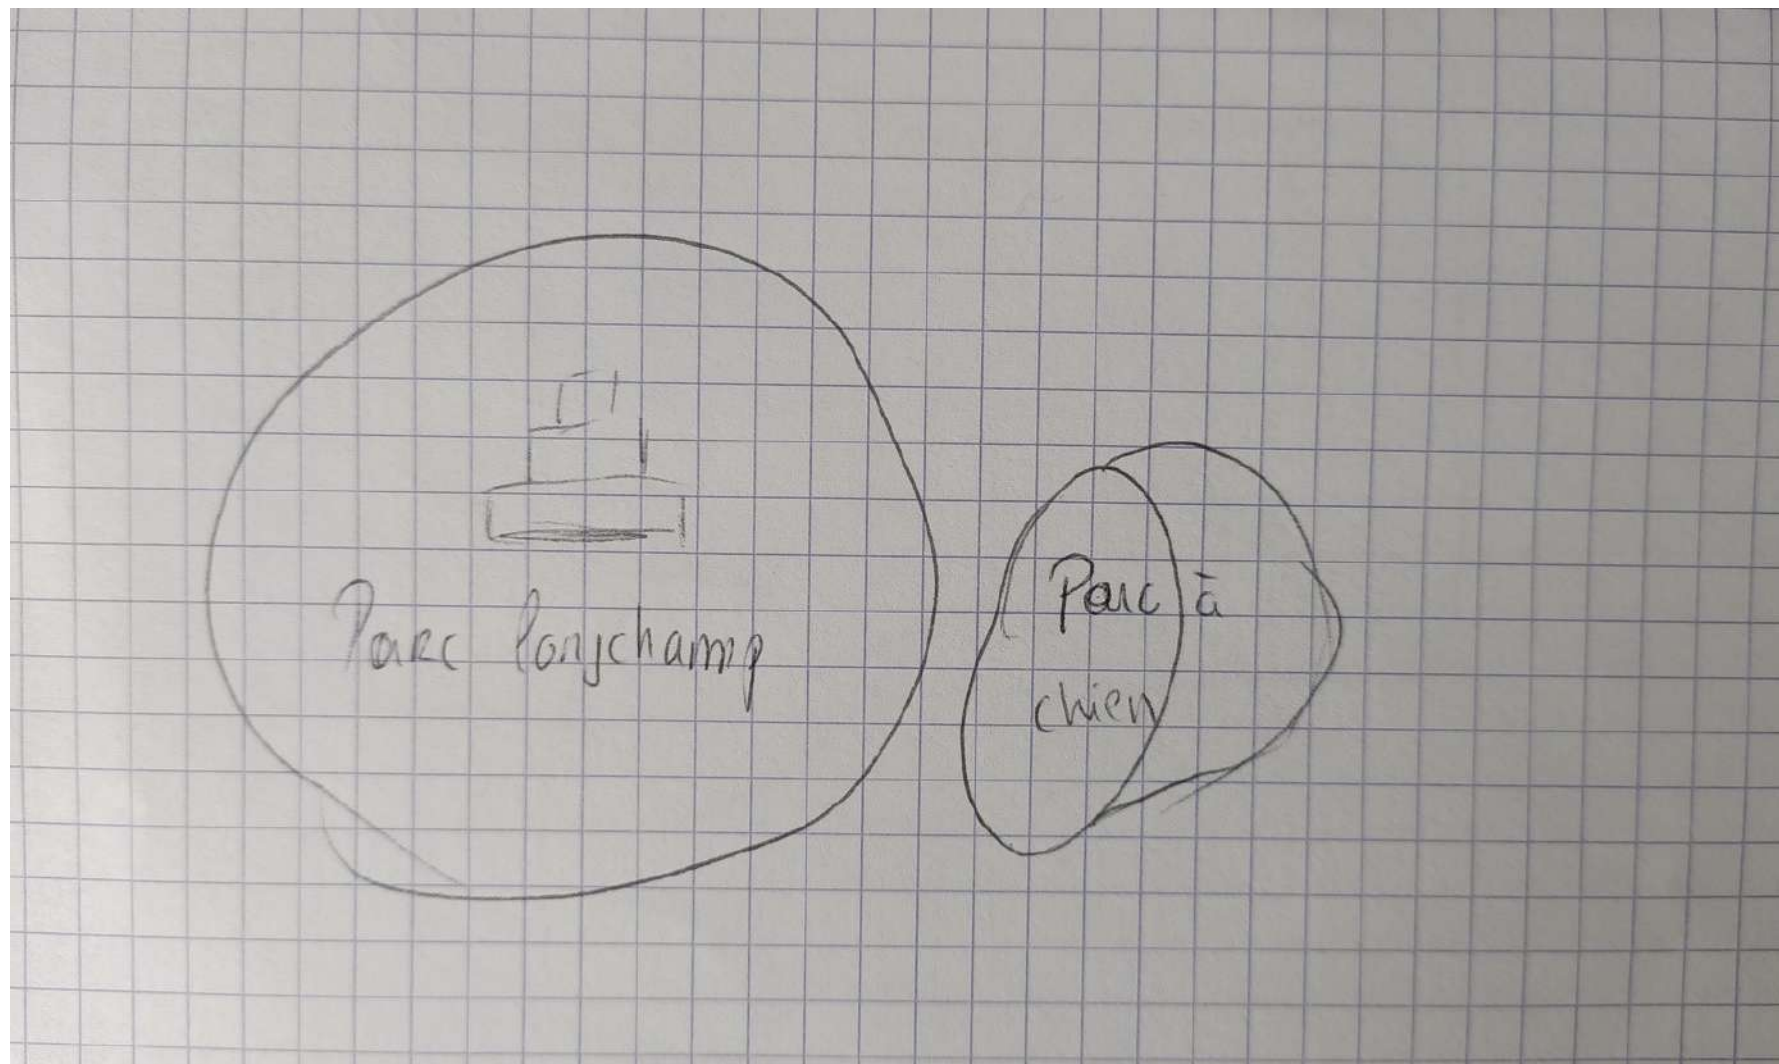 Parc longchamp
Parc à
chien